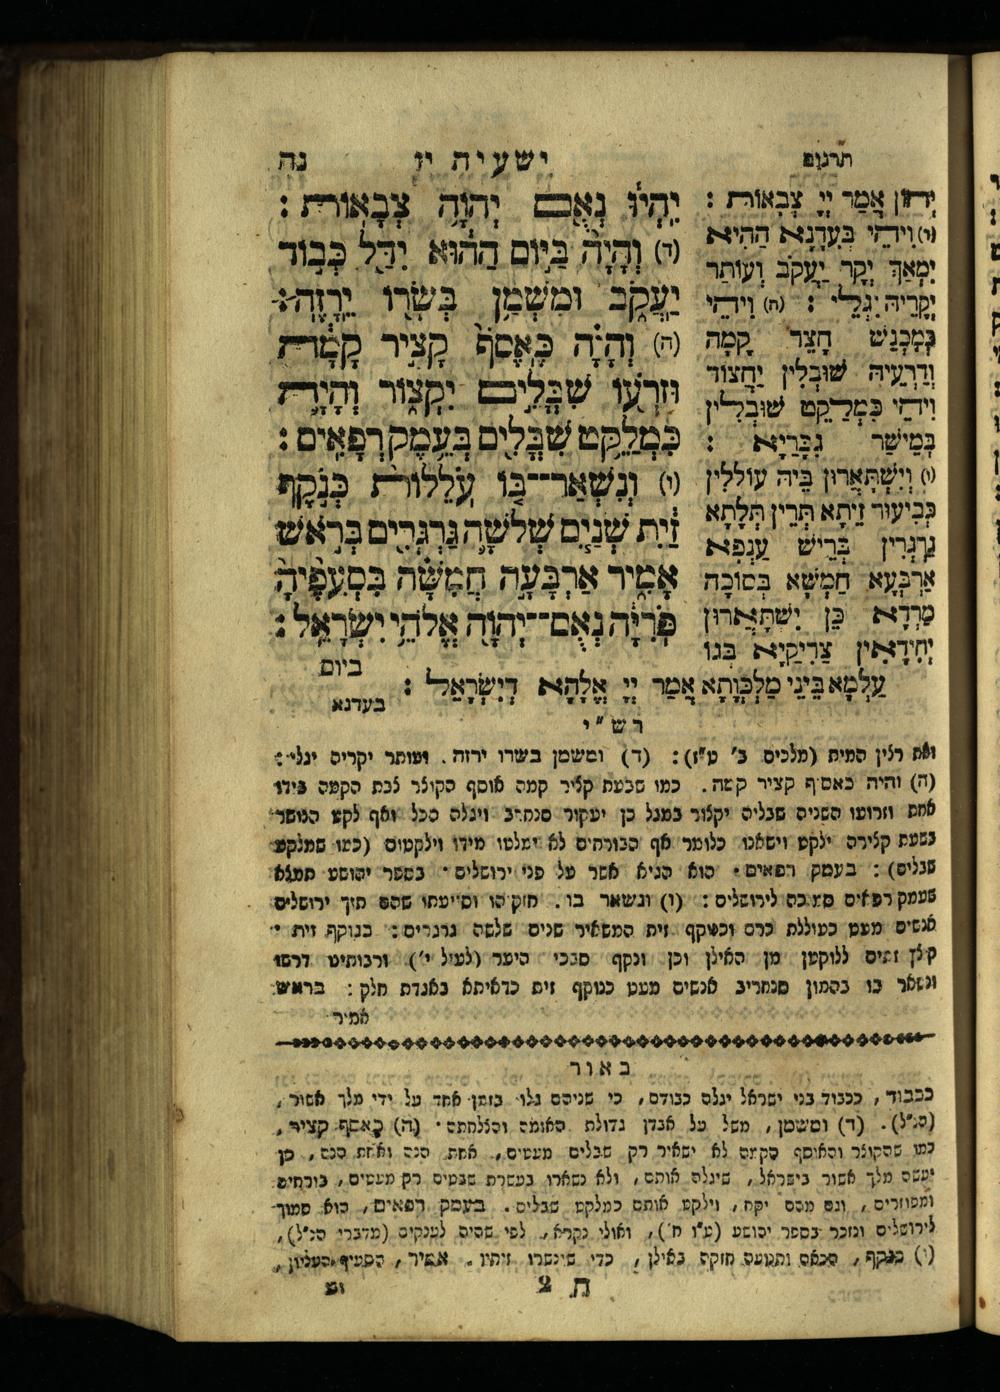 תרגום
ישעיה יז
נה
יִהְיוּ נְאֻם יְהֹוָה צְבָאוֹת :
(ד) וְהָיָה בַּיּוֹם הַהוּא יִדַּל כְּבוֹד
יַעֲקֹב וּמִשְׁמַן בְּשָׂרוֹ יֵרָזֶה :
(ה) וְהָיָה כֶּאֱסֹף קָצִיר קָמָה
וּזְרֹעוֹ שִׁבֳּלִים יִקְצוֹר וְהָיָה
כִּמְלַקֵּט שִׁבֳּלִים בְּעֵמֶק רְפָאִים :
(ו) וְנִשְׁאַר־בּוֹ עֹלֵלוֹת כְּנֹקֶף
זַיִת שְׁנַיִם שְׁלֹשָׁה גַּרְגְּרִים בְּרֹאשׁ
אָמִיר אַרְבָּעָה חֲמִשָּׁה בִּסְעִפֶיהָ
פֹּרִיָּה נְאֻם־יְהוָֹה אֱלֹהֵי יִשְׂרָאֵל :
ביום
יְהוֹן אֲמַר יְיָ צְבָאוֹת :
(ד) וִיהֵי בְּעִדָנָא הַהִיא
יִמְאַךְ יְקַר יַעֲקֹב וְעוֹתַר
יְקָרֵיהּ יִגְלֵי : (ה) וִיהֵי
כְּמִכְנַשׁ חֲצַד קָמָה
וּדְרָעֵיהּ שׁוּבְלִין יַחֲצוֹד
וִיהֵי כִּמְלַקֵּט שׁוּבְלִין
בְּמֵישַׁר גִּבָּרַיָא :
(ו) וְיִשְׁתָּאֲרוּן בֵּיהּ עוֹלְלִין
כְּבִיעוּר זֵיתָא תְּרֵין תְּלָתָא
גַרְגְּרִין בְּרֵישׁ עַנְפָא
אַרְבְּעָא חַמְשָׁא בְּסוֹכָה
מַרְדָא כֵּן יִשְׁתָּאֲרוּן
יְחִידָאִין צַדִיקַיָא בְּגוֹ
עַלְמָא בֵּינֵי מַלְכְּוָתָא אֲמַר יְיָ אֱלָהָא דְיִשְׂרָאֵל :
בעדנא
רש"י
ואת רצין המית (מלכים ב' ט"ז) : (ד) ומשמן בשרו ירזה . ועותר יקריה יגלי :
(ה) והיה כאסף קציר קמה . כמו שבעת קציר קמה אוסף הקוצר לבת הקמה בידו
אחת וזרועו השניה שבליה יקצור במגל כן יעקור סנחריב ויגלה הכל ואף לקט הנושר
בשעת קצירה ילקט וישאנו כלומר אף הבורחים לא ימלטו מידו וילקטום (כמו שמלקט
שבלים) : בעמק רפאים . הוא הגיא אשר על פני ירושלים . בספר יהושע תמצא
שעמק רפאים סמוכה לירושלים : (ו) ונשאר בו . חזקיהו וסייעתו שהם תוך ירושלים
אנשים מעט כעוללת כרם וכנוקף זית המשאיר שנים שלשה גרגרים : כנוקף זית .
ללוקטן מן האילן וכן ונקף סבכי היער (לעיל י') ורבותינו דרשו
ונשאר בו בהמון סנחריב אנשים מעט כנוקף זית כדאיתא באגדת חלק : בראש
אמיר
באור
ככבוד , ככבוד בני ישראל יגלה כבודם , כי שניהם גלו בזמן אחד על ידי מלך אשור ,
(הנ"ל) . (ד) ומשמן , משל על אבדן גדולת האומה והצלחתה . (ה) כאסף קציר ,
כמו שהקוצר והאוסף הקמה לא ישאיר רק שבלים מעטים , אחת הנה ואחת הנה , כן
יעשה מלך אשור בישראל , שיגלה אותם , ולא נשארו בעשרת שבטים רק מעטים , בורחים
ומפוזרים , וגם מהם יקח , וילקט אותם כמלקט שבלים . בעמק רפאים , הוא סמוך
לירושלים ונזכר בספר יהושע (ט"ו ח') , ואולי נקרא , לפי שהיה לענקים (מדברי הנ"ל) ,
(ו) כנקף , הכאה ותנועה חזקה באילן , כדי שינשרו זיתיו . אמיר , הסעיף העליון ,
ח 2